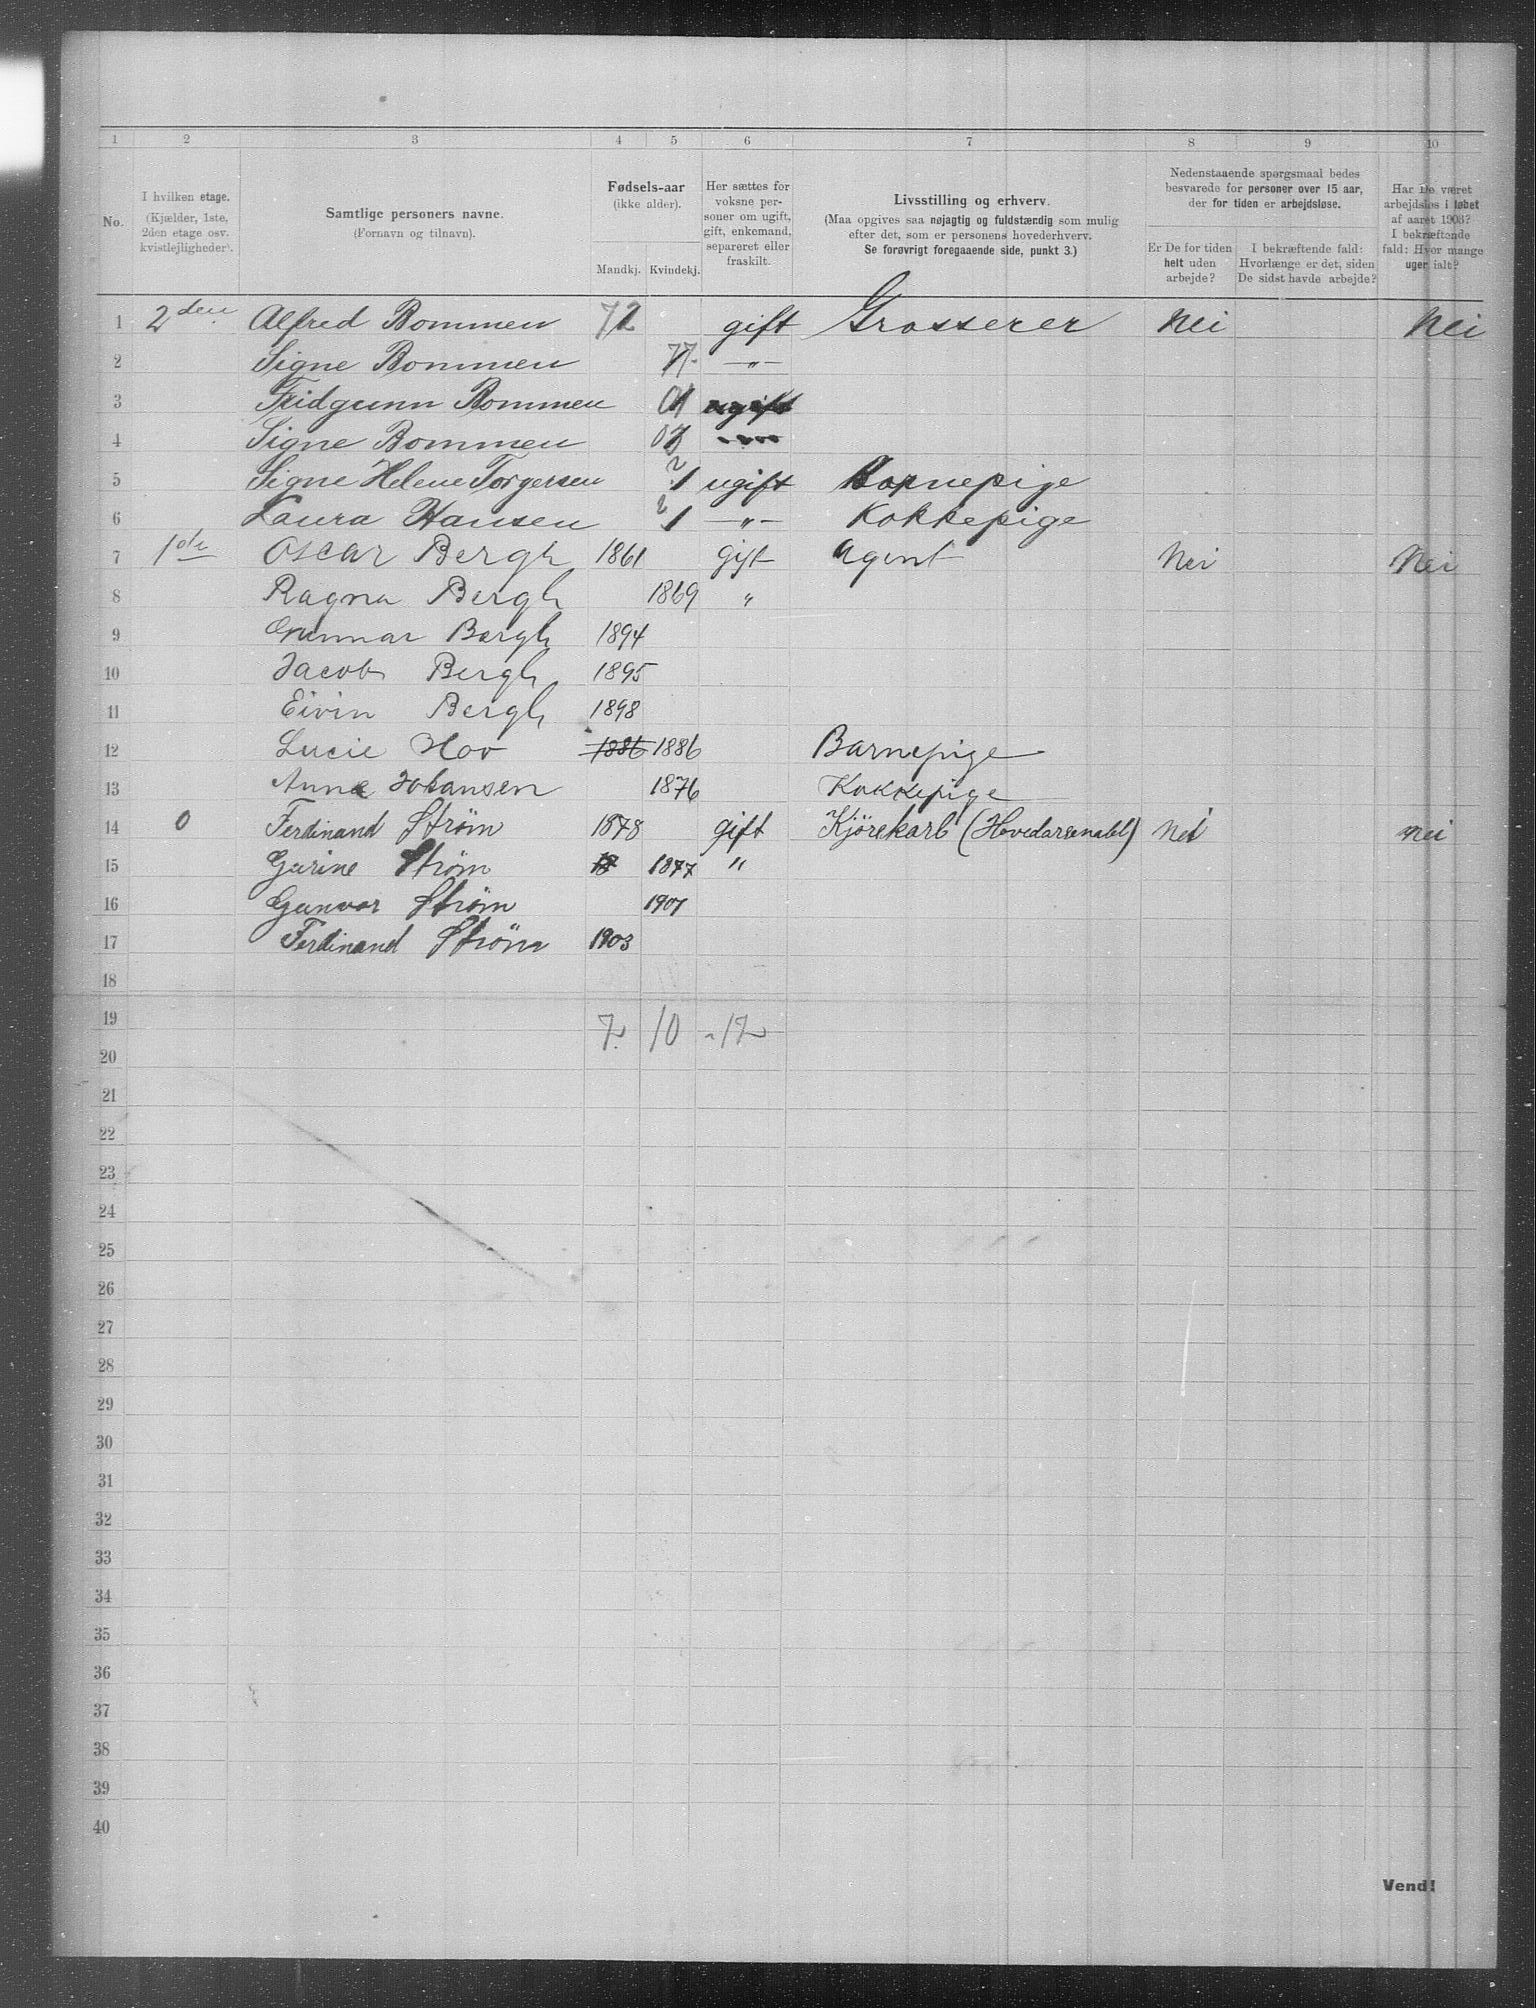 1 2 3 4 5 6 7 8 9 10
No. I hvilken etage. (Kjælder, 1ste, 2den etage osv. kvistlejligheder). Samtlige personers navne. (Fornavn og tilnavn). Fødsels-aar (ikke alder). Mandkj. Kvindekj. Her sættes for voksne personer om ugift, gift, enkemand, separeret eller fraskilt. Livsstilling og erhverv. (Maa opgives saa nøjagtig og fuldstændig som mulig efter det, som er personens hovederhverv. Se forøvrigt foregaaende side, punkt 3.) Nedenstaaende spørgsmaal bedes besvarede for personer over 15 aar, der for tiden er arbejdsløse. Er De for tiden helt uden arbejde? I bekræftende fald: Hvorlænge er det, siden De sidst havde arbejde? Har De været arbejdsløs i løbet af aaret 1903? I bekræftende fald: Hvor mange uger ialt?
1 2den Alfred Bommen 72 gift Grosserer Nei Nei
2 Signe Bommen 77. —"—
3 Fridgunn Bommen 01 ugift
4 Signe Bommen 03
5 Signe Helene Torgersen ? 1 ugift Barnepige
6 Laura Hansen ? 1 —"— Kokkepige
7 1ste Oscar Bergh 1861 gift Agent Nei Nei
8 Ragna Bergh 1869 "
9 Gunnar Bergh 1894
10 Jacob Bergh 1895
11 Eivin Bergh 1898
12 Lucie Hov 1886 1886 Barnepige
13 Anna Johansen 1876 Kokkepige
14 0 Ferdinand Strøm 1878 gift Kjörekarl (Hovedarsenalet) Nei nei
15 Gurine Strøm 18 1877 "
16 Gunvor Strøm 1901
17 Ferdinand Strøm 1903
18
19 7. 10 - 17
20
21
22
23
24
25
26
27
28
29
30
31
32
33
34
35
36
37
38
39
40
Vend!